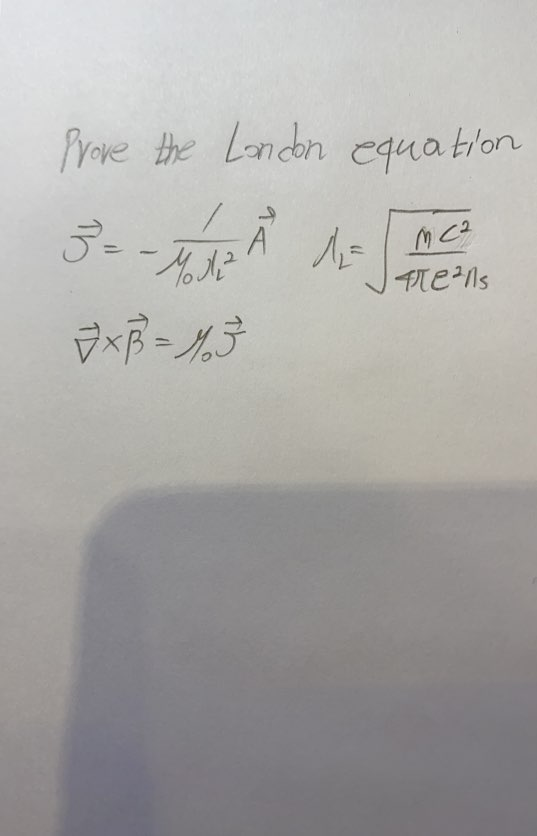 Prove the London equation
J⃗ = - 1/(μ₀λ_L²) A⃗   λ_L = √(mc²/(4πe²n_s))
∇⃗ × B⃗ = μ₀J⃗